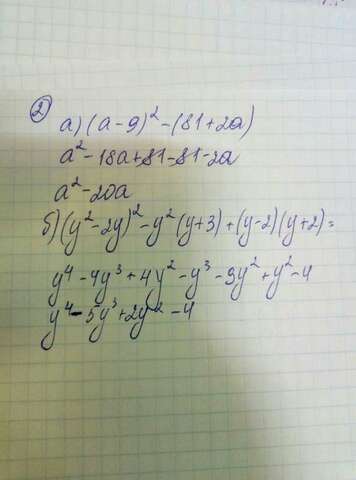 ②
а) (a-9)² - (81+2a)
a² - 18a + 81 - 81 - 2a
a² - 20a
б) (y² - 2y)² - y² (y+3) + (y-2)(y+2) =
y⁴ - 4y³ + 4y² - y³ - 3y² + y² - 4
y⁴ - 5y³ + 2y² - 4